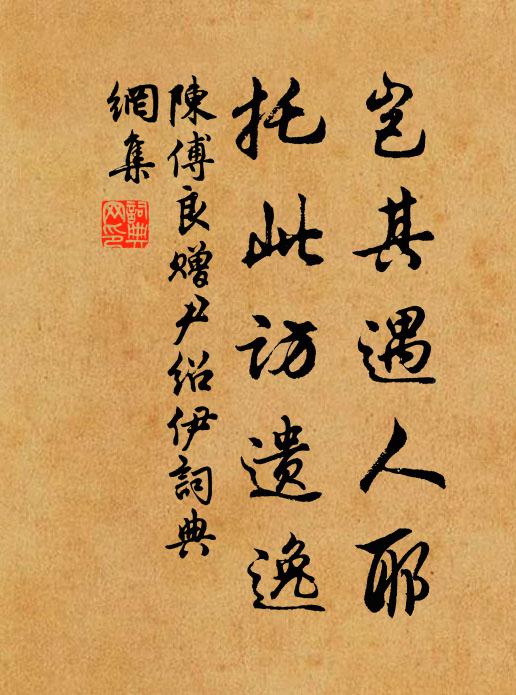 岂其遇人耶
托此访遗逸
陳傅良赠尹绍伊詞典
網集
詞典
网印